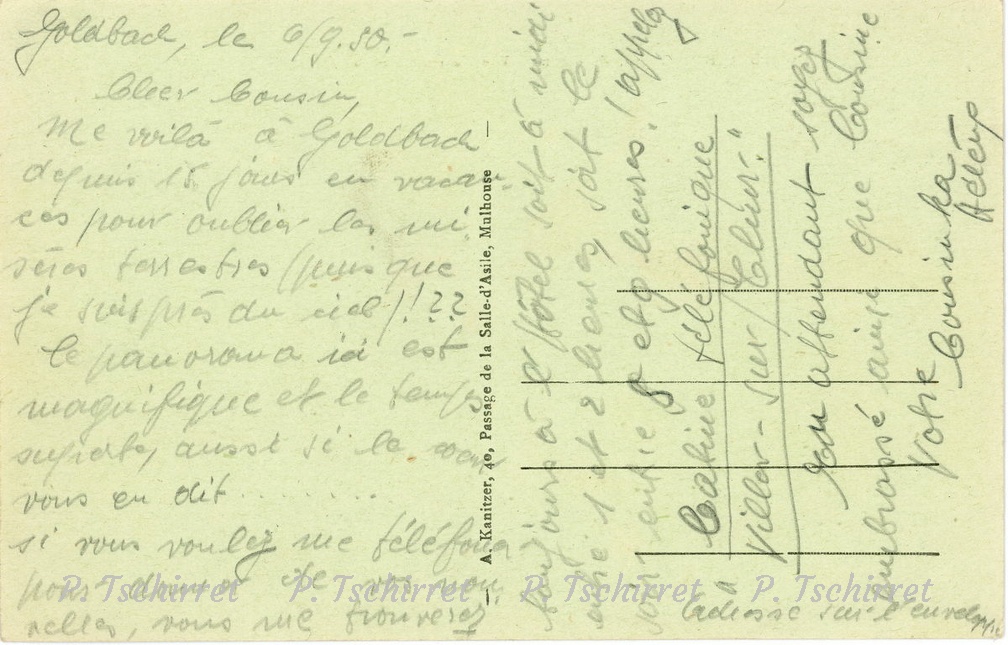 Goldbach, le 6/9.50.-
Cher Cousin,
Me voilà à Goldbach
depuis 15 jours en vacan-
ces pour oublier les mi-
sères terrestres (puis que
je suis près du ciel)!??
Le panorama ici est
magnifique et le temps
superbe, aussi si le coeur
vous en dit ........
si vous voulez me téléfoner
pour donner de vos nou
velles, vous me trouverez
toujours à l'Hôtel soit à midi
entre 1 et 2 heures, soit le
soir entre 8 et 9 heures! appelez
Cabine téléfonique
Willer-sur/Thur."
En attendant soyez
embrassé ainsi que Cousine
Votre Cousinka
Adèle
"adresse sur l'enveloppe
— A. Kanitzer, 40, Passage de la Salle-d'Asile, Mulhouse —
P. Tschirret P. Tschirret P. Tschirret P. Tschirret